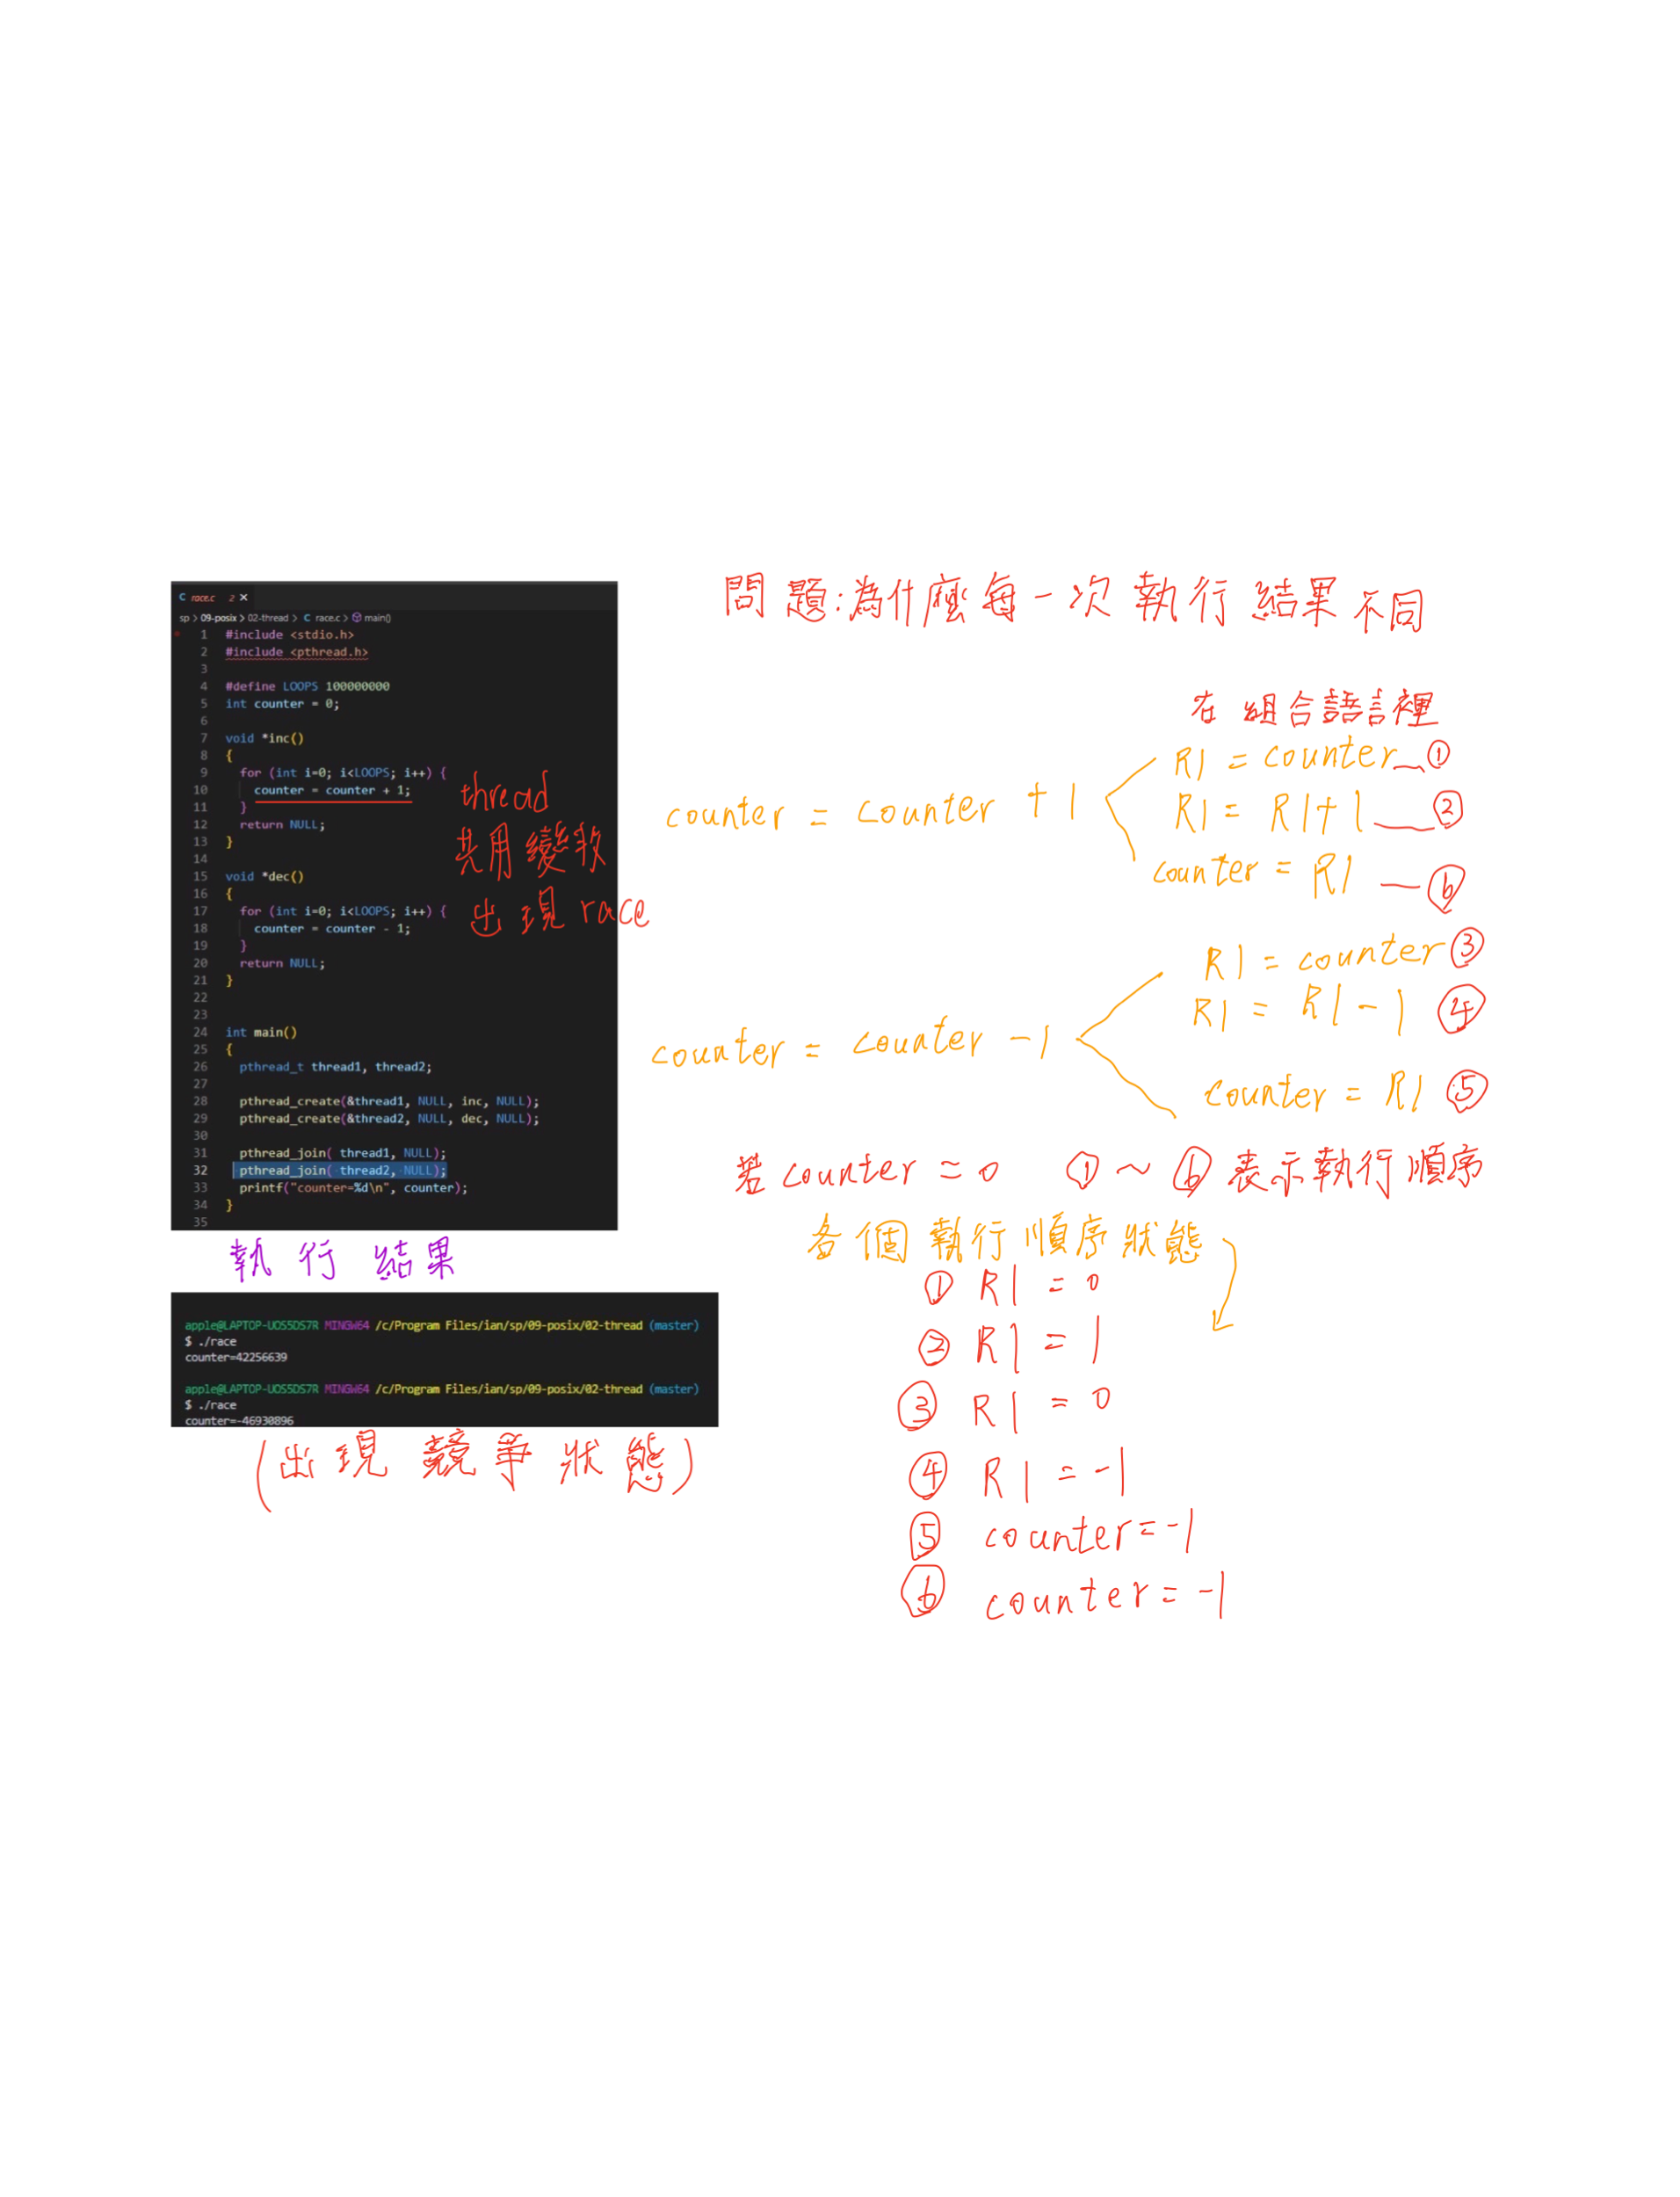 race.c 2 ×
sp > 09-posix > 02-thread > C race.c > main()
1 #include <stdio.h>
2 #include <pthread.h>
3
4 #define LOOPS 100000000
5 int counter = 0;
6
7 void *inc()
8 {
9 for (int i=0; i<LOOPS; i++) {
10 counter = counter + 1;
11 }
12 return NULL;
13 }
14
15 void *dec()
16 {
17 for (int i=0; i<LOOPS; i++) {
18 counter = counter - 1;
19 }
20 return NULL;
21 }
22
23
24 int main()
25 {
26 pthread_t thread1, thread2;
27
28 pthread_create(&thread1, NULL, inc, NULL);
29 pthread_create(&thread2, NULL, dec, NULL);
30
31 pthread_join( thread1, NULL);
32 pthread_join( thread2, NULL);
33 printf("counter=%d\n", counter);
34 }
35
thread
共用變數
出現 race
執行結果
apple@LAPTOP-UOS5DS7R MINGW64 /c/Program Files/ian/sp/09-posix/02-thread (master)
$ ./race
counter=42256639
apple@LAPTOP-UOS5DS7R MINGW64 /c/Program Files/ian/sp/09-posix/02-thread (master)
$ ./race
counter=-46930896
(出現競爭狀態)
問題:為什麼每一次執行結果不同
在組合語言裡
counter = counter + 1
R1 = counter ①
R1 = R1+1 ②
counter = R1 ⑥
counter = counter -1
R1 = counter ③
R1 = R1-1 ④
counter = R1 ⑤
若counter = 0 ①~⑥表示執行順序
各個執行順序狀態
① R1 = 0
② R1 = 1
③ R1 = 0
④ R1 = -1
⑤ counter = -1
⑥ counter = -1